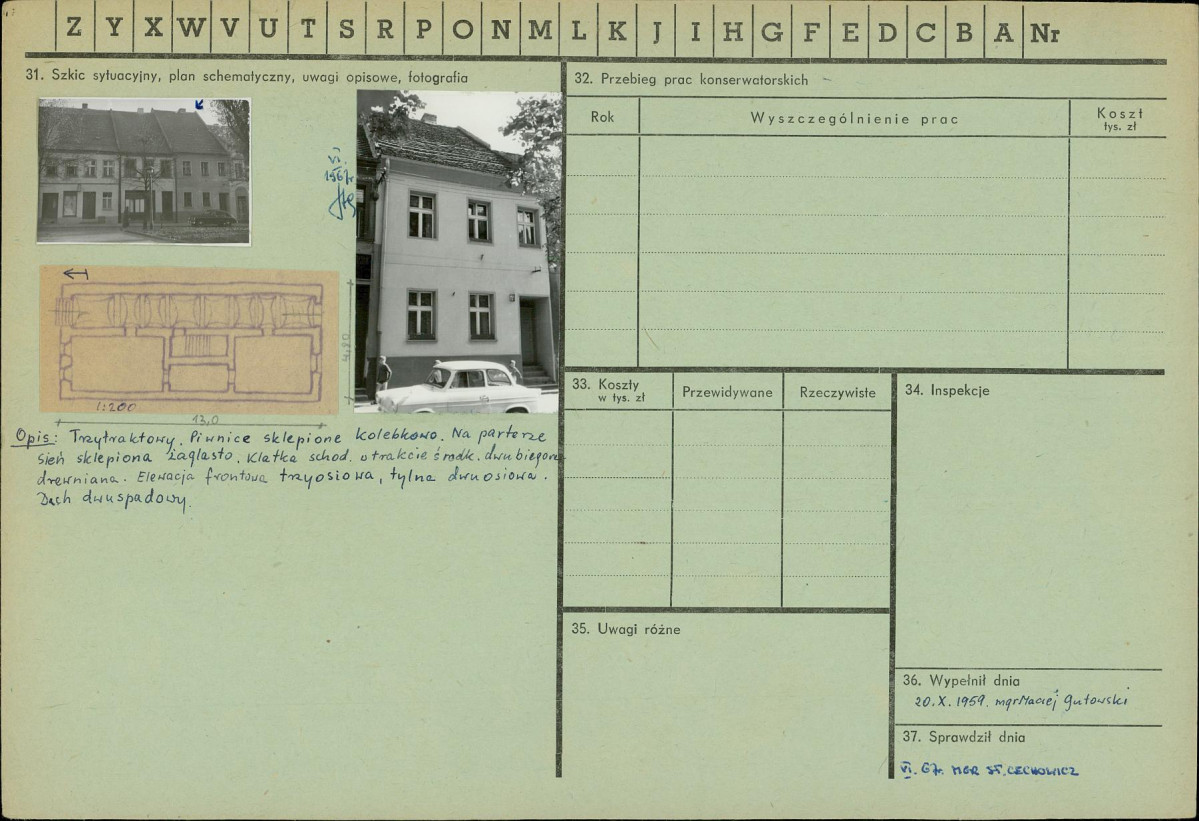 Z Y X W V U T S R P O N M L K J I H G F E D C B A Nr
31. Szkic sytuacyjny, plan schematyczny, uwagi opisowe, fotografia
VI.
1967r.
1:200
13,0
4,20
Opis: Trzytraktowy. Piwnice sklepione kolebkowo. Na parterze
sień sklepiona żaglasto. Klatka schod. w trakcie środk. dwubiegowa
drewniana. Elewacja frontowa trzyosiowa, tylna dwuosiowa.
Dach dwuspadowy.
32. Przebieg prac konserwatorskich
Rok
Wyszczególnienie prac
Koszt
tys. zł
33. Koszty
w tys. zł
Przewidywane
Rzeczywiste
34. Inspekcje
35. Uwagi różne
36. Wypełnił dnia
20.X.1959. mgr Maciej Gutowski
37. Sprawdził dnia
VI. 67r. MGR ST. CECHOWICZ